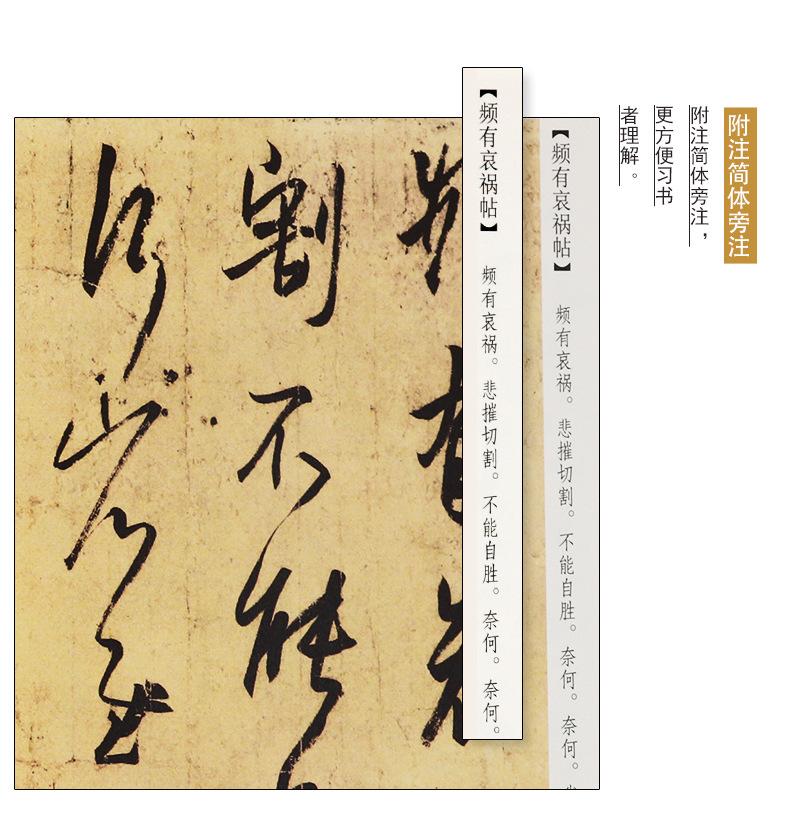 附注简体旁注
附注简体旁注，
更方便习书
者理解。
【频有哀祸帖】
频有哀祸。悲摧切割。不能自胜。奈何。奈何。
【频有哀祸帖】
频有哀祸。悲摧切割。不能自胜。奈何。奈何。
频有哀
割不能